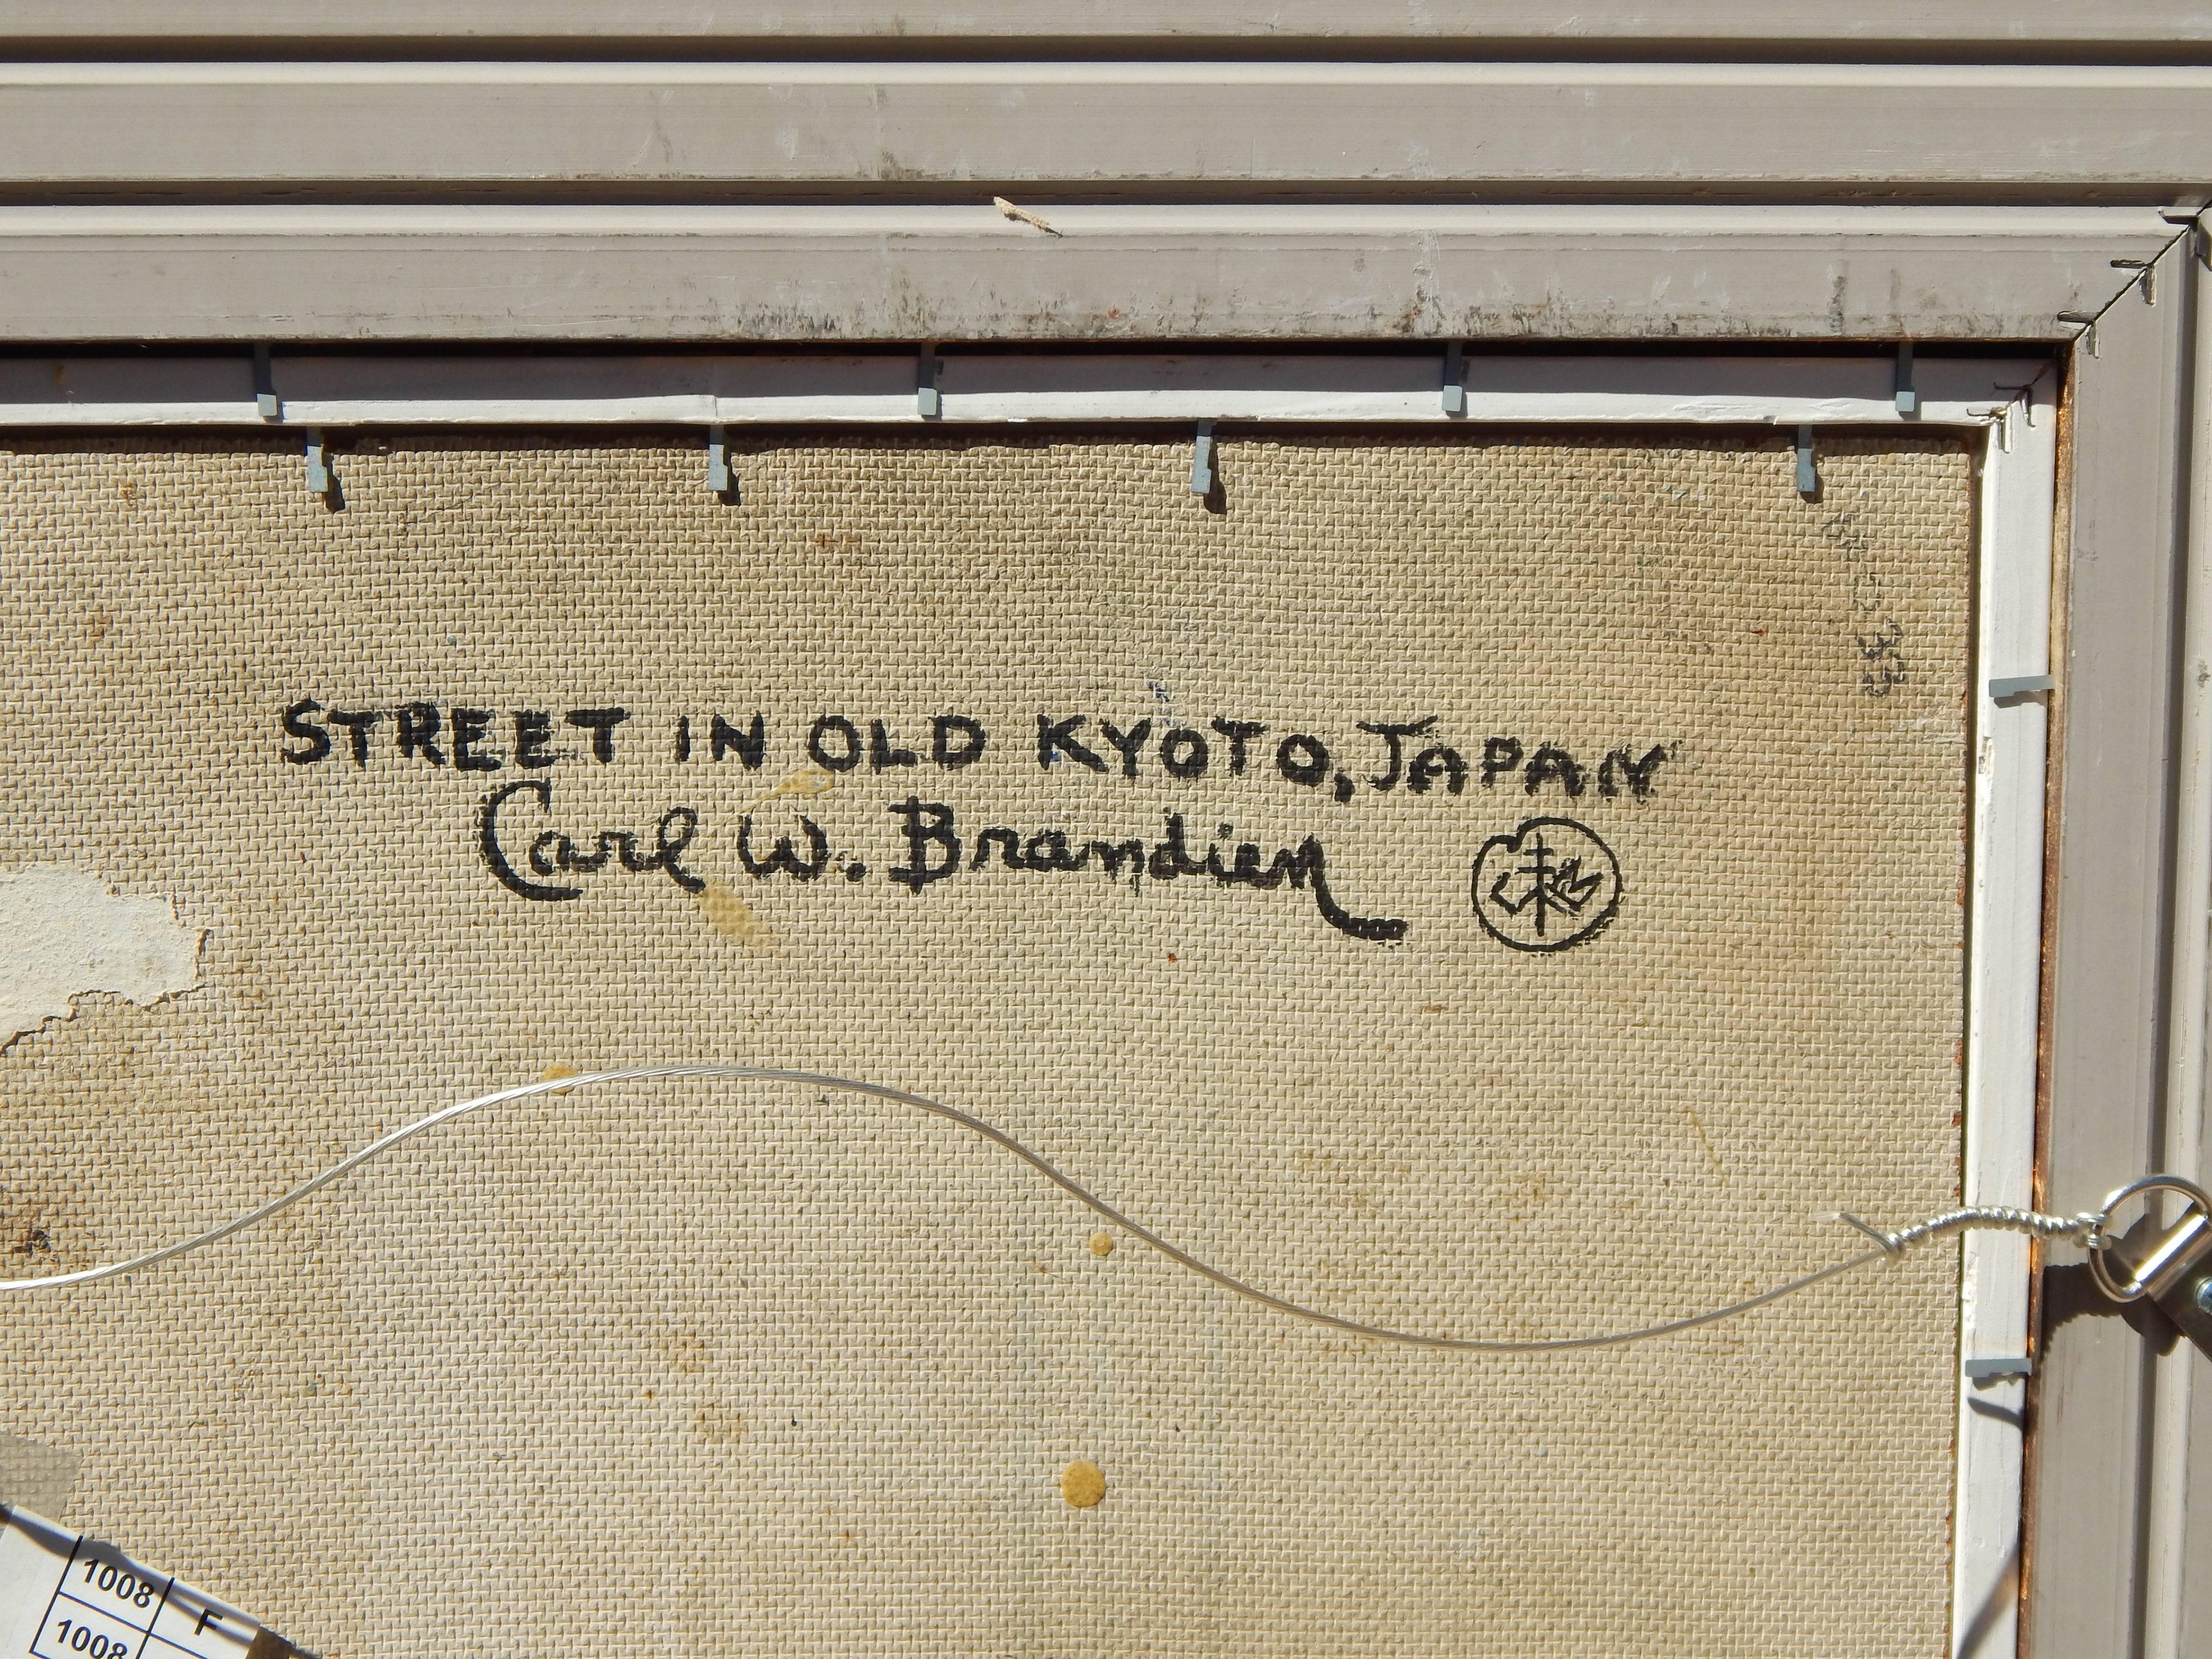 STREET IN OLD KYOTO, JAPAN
Carl W. Brandien
1008 F
1008